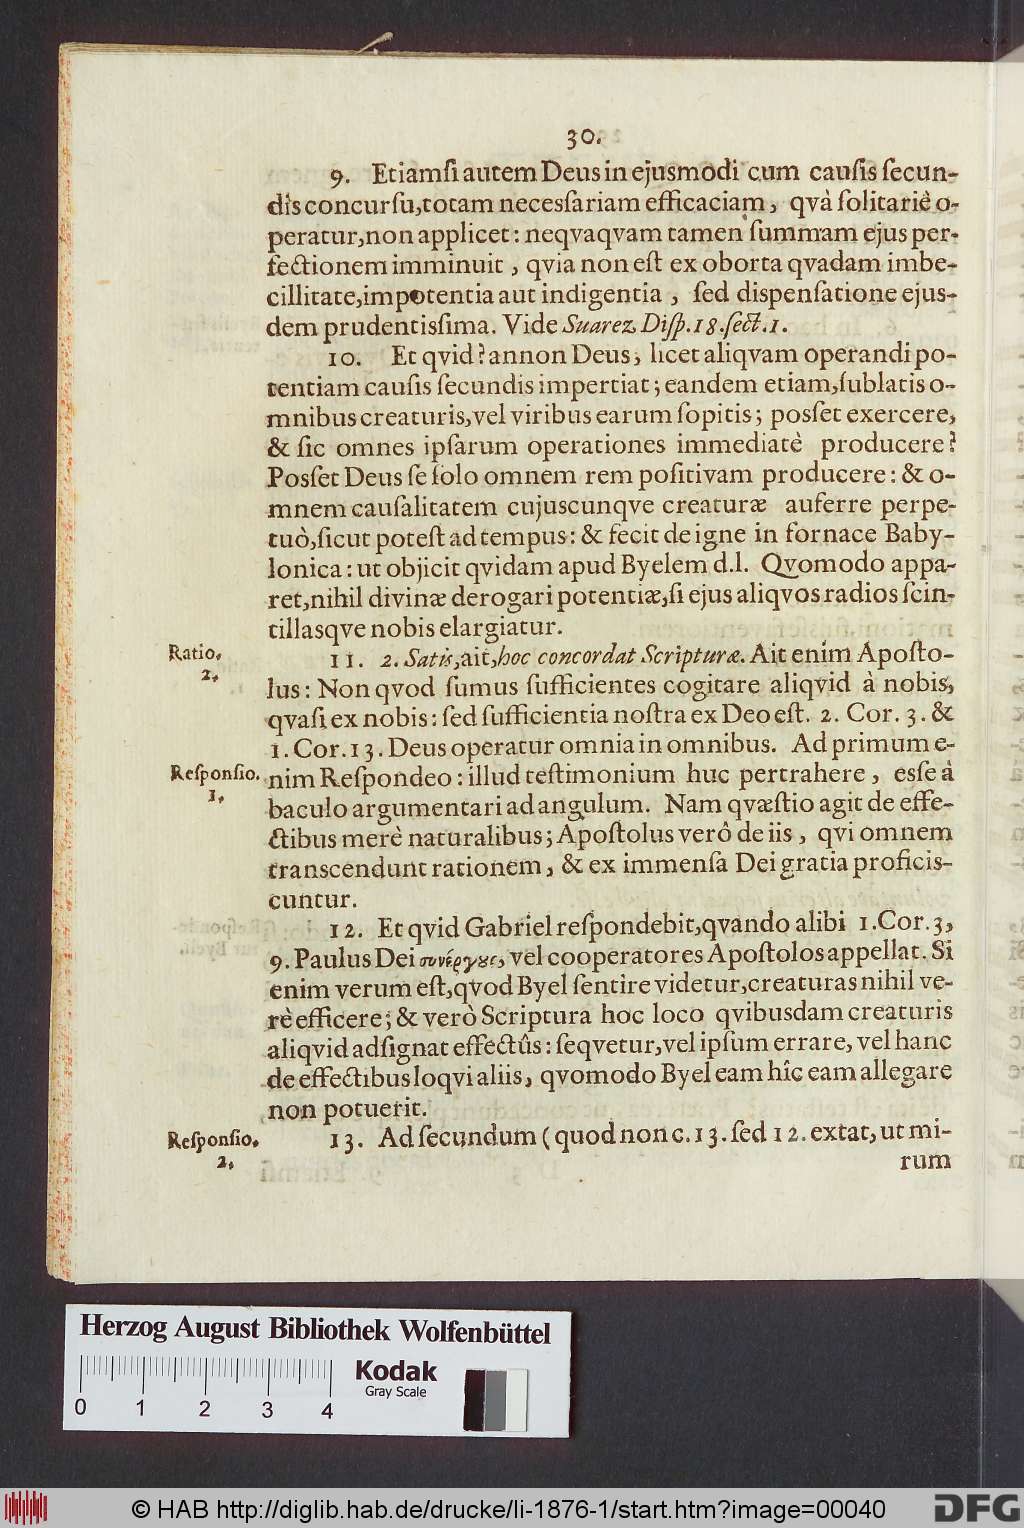 30.
9. Etiamſi autem Deus in ejusmodi cum cauſis ſecun-
dis concurſu, totam necesſariam efficaciam, qvà ſolitariè o-
peratur, non applicet: neqvaqvam tamen ſummam ejus per-
fectionem imminuit, qvia non eſt ex oborta qvadam imbe-
cillitate, impotentia aut indigentia, ſed dispenſatione ejus-
dem prudentisſima. Vide Suarez Diſp. 18. ſect. 1.
10. Et qvid? annon Deus, licet aliqvam operandi po-
tentiam cauſis ſecundis impertiat; eandem etiam, ſublatis o-
mnibus creaturis, vel viribus earum ſopitis; posſet exercere,
& ſic omnes ipſarum operationes immediatè producere?
Posſet Deus ſe ſolo omnem rem poſitivam producere: & o-
mnem cauſalitatem cujuscunqve creaturæ auferre perpe-
tuò, ſicut poteſt ad tempus: & fecit de igne in fornace Baby-
lonica: ut objicit qvidam apud Byelem d.l. Qvomodo appa-
ret, nihil divinæ derogari potentiæ, ſi ejus aliqvos radios ſcin-
tillasqve nobis elargiatur.
Ratio.
2.
11. 2. Satis, ait, hoc concordat Scripturæ. Ait enim Apoſto-
lus: Non qvod ſumus ſufficientes cogitare aliqvid à nobis,
qvaſi ex nobis: ſed ſufficientia noſtra ex Deo eſt. 2. Cor. 3. &
1. Cor. 13. Deus operatur omnia in omnibus. Ad primum e-
Reſponſio.
1.
nim Reſpondeo: illud teſtimonium huc pertrahere, esſe à
baculo argumentari ad angulum. Nam qvæſtio agit de effe-
ctibus merè naturalibus; Apoſtolus verô de iis, qvi omnem
transcendunt rationem, & ex immenſa Dei gratia proficis-
cuntur.
12. Et qvid Gabriel reſpondebit, qvando alibi 1. Cor. 3,
9. Paulus Dei συνέργȣς, vel cooperatores Apoſtolos appellat. Si
enim verum eſt, qvod Byel ſentire videtur, creaturas nihil ve-
rè efficere; & verò Scriptura hoc loco qvibusdam creaturis
aliqvid adſignat effectûs: ſeqvetur, vel ipſum errare, vel hanc
de effectibus loqvi aliis, qvomodo Byel eam hîc eam allegare
non potuerit.
Reſponſio.
2.
13. Ad ſecundum (quod non c. 13. ſed 12. extat, ut mi-
rum
Herzog August Bibliothek Wolfenbüttel
Kodak
Gray Scale
0 1 2 3 4
© HAB http://diglib.hab.de/drucke/li-1876-1/start.htm?image=00040
DFG